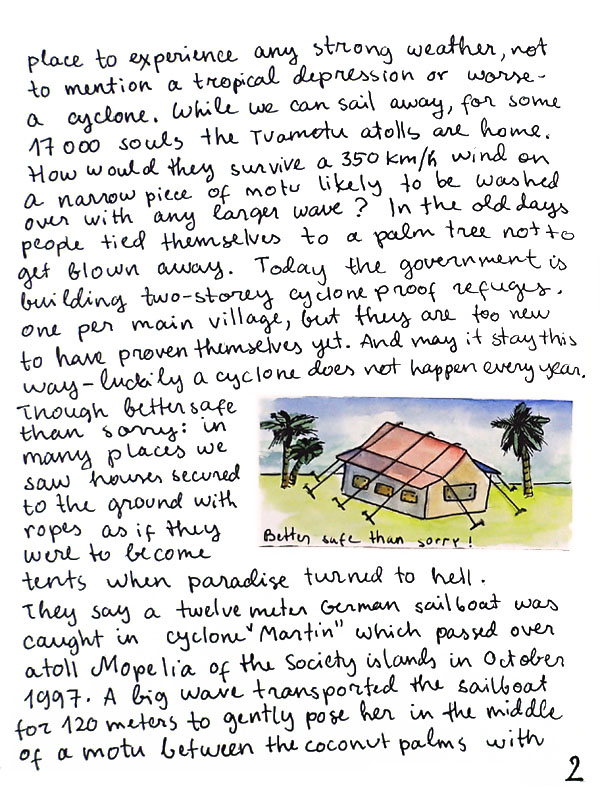 place to experience any strong weather, not
to mention a tropical depression or worse -
a cyclone. While we can sail away, for some
17 000 souls the Tuamotu atolls are home.
How would they survive a 350 km/h wind on
a narrow piece of motu likely to be washed
over with any larger wave? In the old days
people tied themselves to a palm tree not to
get blown away. Today the government is
building two-storey cyclone proof refuges.
one per main village, but they are too new
to have proven themselves yet. And may it stay this
way - luckily a cyclone does not happen every year.
Though better safe
than sorry: in
many places we
saw houses secured
to the ground with
ropes as if they
were to become
Better safe than sorry!
tents when paradise turned to hell.
They say a twelve meter German sailboat was
caught in cyclone "Martin" which passed over
atoll Mopelia of the Society islands in October
1997. A big wave transported the sailboat
for 120 meters to gently pose her in the middle
of a motu between the coconut palms with
2